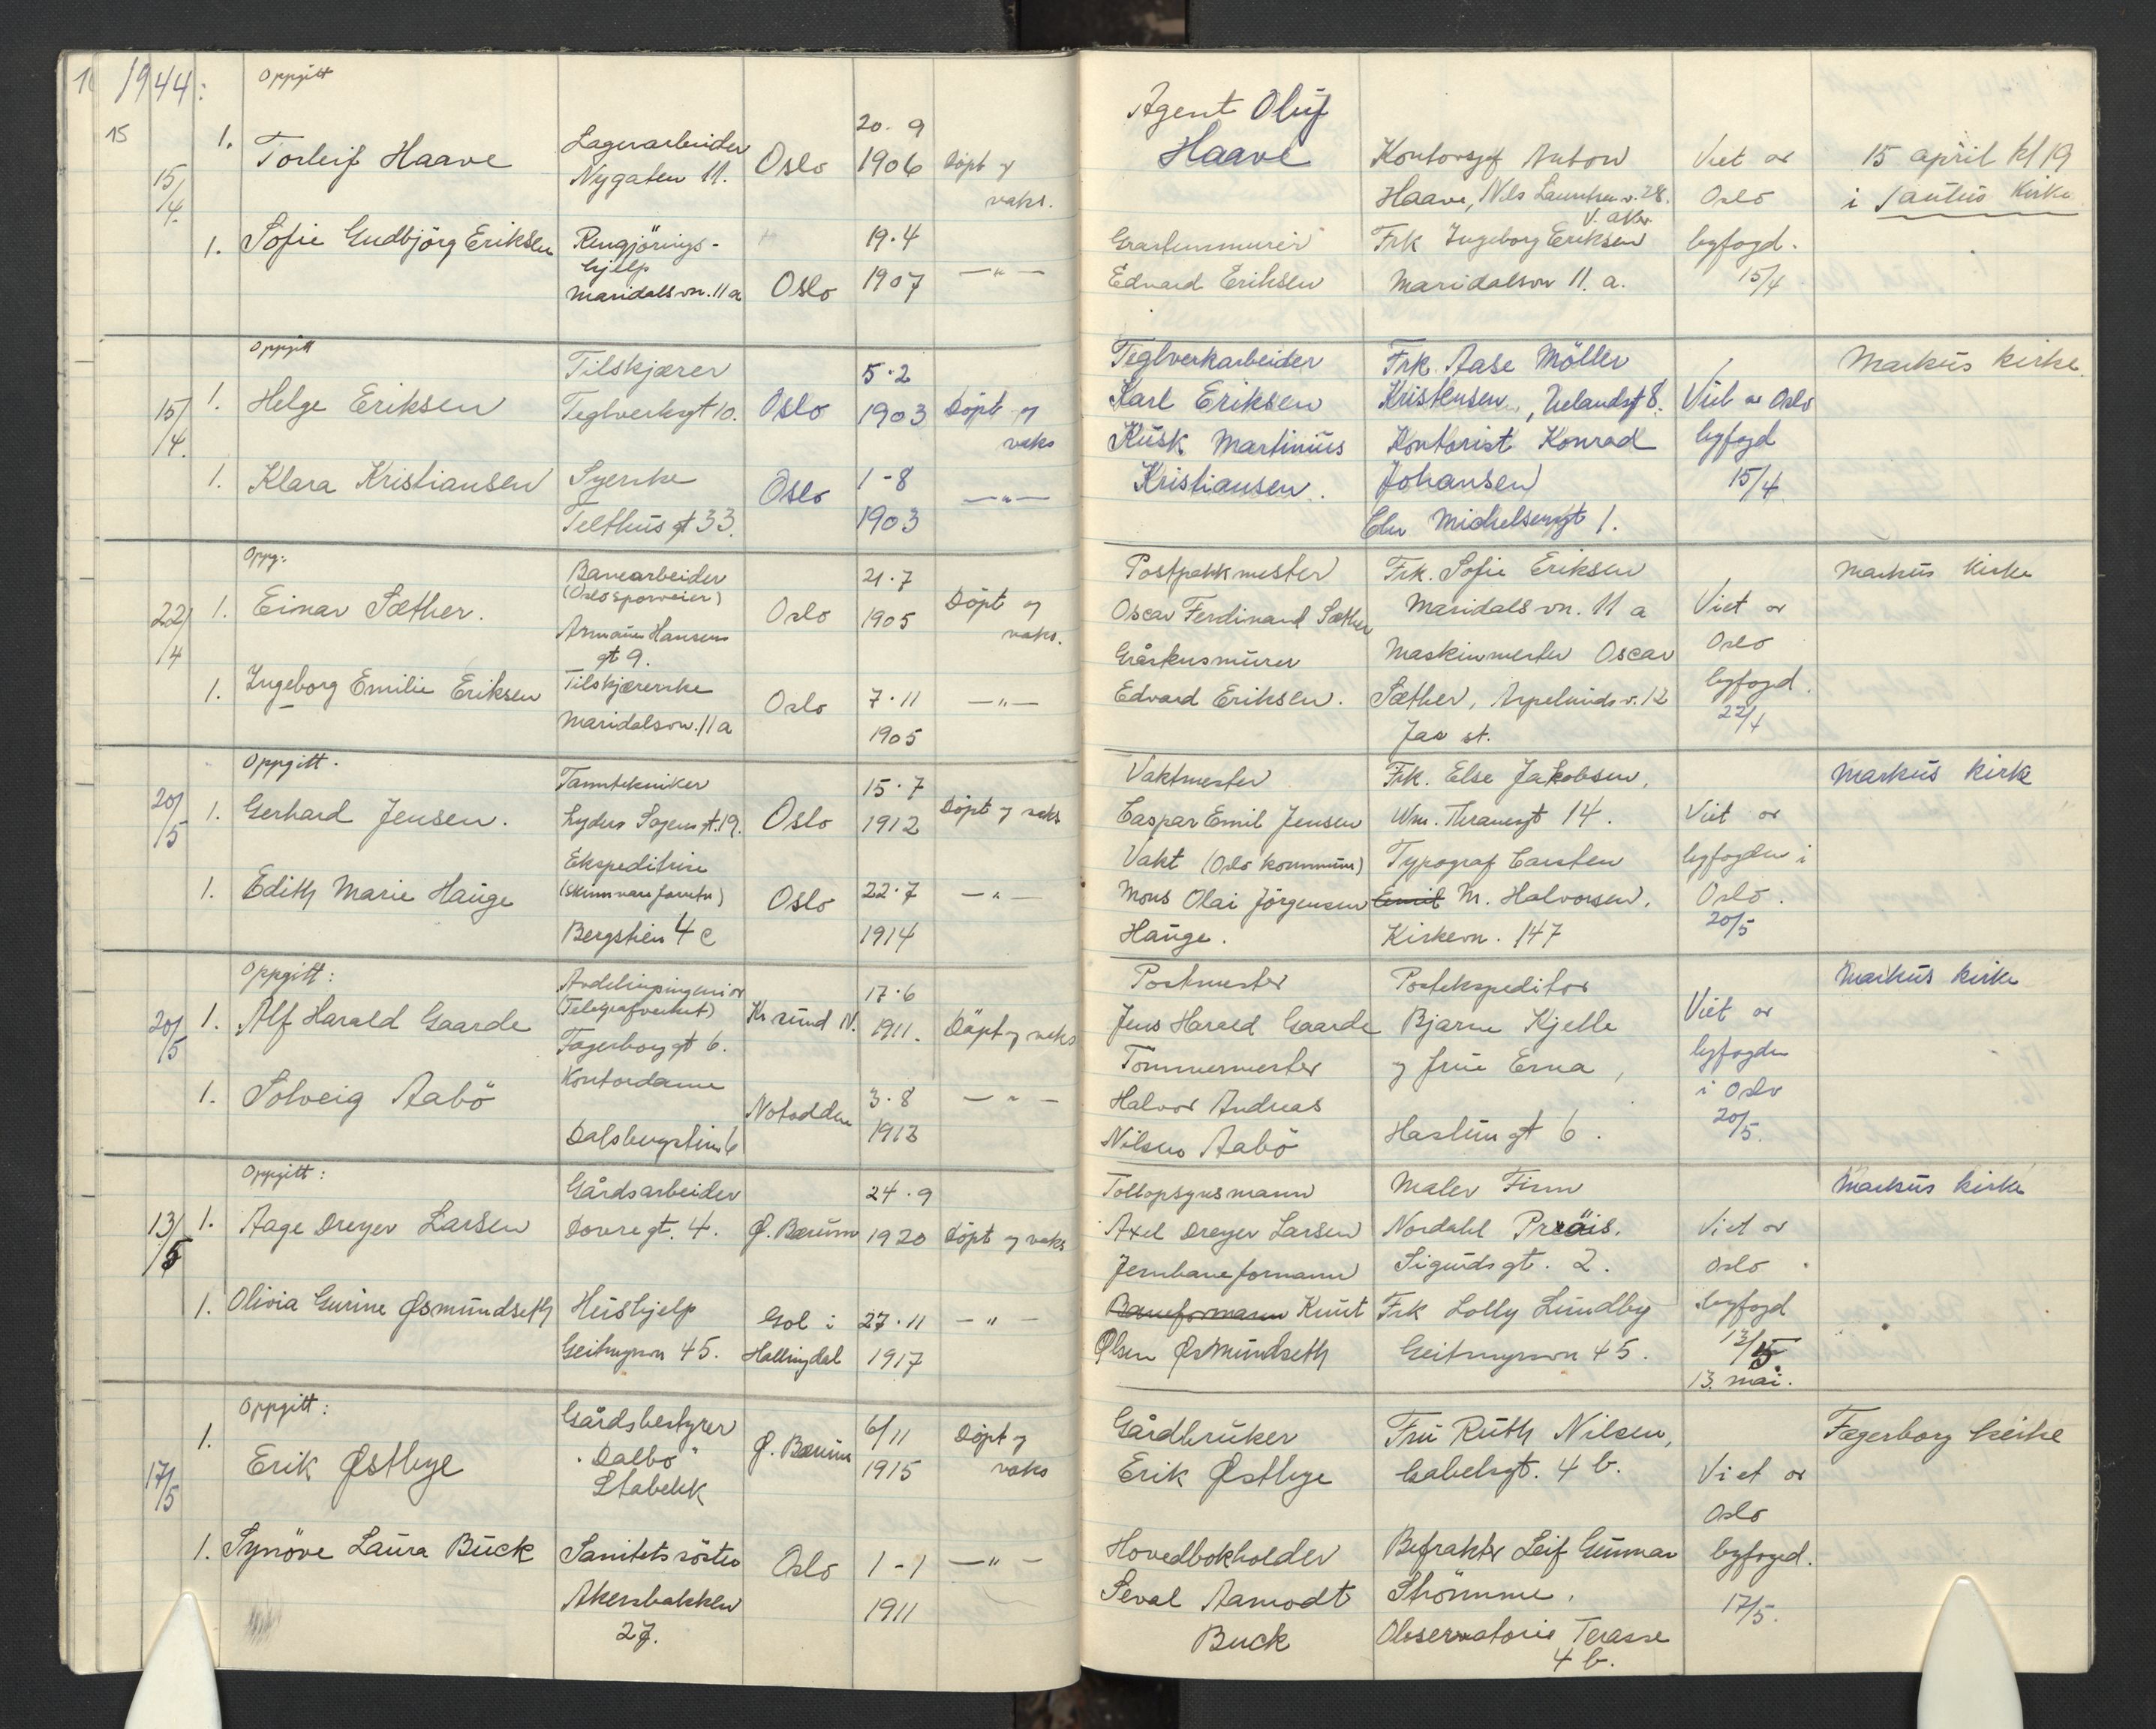 1944:
Oppgitt
15
15/4.
1. Torleif Haave
Lagerarbeider
Nygaten 11.
Oslo
20.9
1906
Döpt og
vaks.
1. Sofie Gudbjörg Eriksen
Rengjörings-
hjelp
Maridalsvn. 11 a
Oslo
19.4
1907
—"—
Oppgitt
15/4.
1. Helge Eriksen
Tilskjærer
Teglverksgt 10.
Oslo
5.2
1903
Döpt og
vaks
1. Klara Kristiansen
Syerske
Telthusgt 33.
Oslo
1-8
1903
—"—
Oppg:
22/4
1. Einar Sæther.
Banearbeider
(Oslo sporveier)
Armauer Hansens
gt 9.
Oslo
21.7
1905
Döpt og
vaks.
1. Ingeborg Emilie Eriksen
Tilskjærerske
Maridalsvn. 11 a
Oslo
7.11
1905
—"—
Oppgitt.
20/5
1. Gerhard Jensen.
Tanntekniker
Lyder Sagens gt. 19.
Oslo
15.7
1912
Döpt og vaks
1. Edith Marie Hauge
Ekspeditrise
Bergstien 4 c
Oslo
22.7
1914
—"—
Oppgitt:
20/5
1. Alf Harald Gaarde
Avdelingsingeniør
(Telegrafverket)
Fagerborggt 6.
Kr.sund N.
17.6
1911.
Döpt og vaks
1. Solveig Aabö
Kontordame
Dalsbergstien 6
Notodden
3.8
1913
—"—
Oppgitt:
13/5
1. Aage Dreyer Larsen
Gårdsarbeider
Dovregt. 4.
Ø. Bærum
24.9
1920
Döpt og vaks
1. Olivia Gurine Øsmundseth
Hushjelp
Geitmyrsvn 45.
Gol i
Hallingdal
27.11
1917
—"—
Oppgitt:
17/5
1. Erik Østbye
Gårdsbestyrer
"Dalbo"
Stabekk
Ø. Bærum
6/11
1915
Döpt og
vaks
1. Synöve Laura Buck
Sanitetssöster
Akersbakken
27.
Oslo
1-1
1911
—"—
Agent Oluf
Haave
Kontorsjef Anton
Haave, Nils Lauritsens v. 28.
V. Aker
Viet av
Oslo
byfogd.
15/4
15 april kl 19
i Paulus Kirke
Edvard Eriksen
Frk Ingeborg Eriksen
Maridalsvn 11. a.
Teglverkarbeider
Karl Eriksen
Kusk Martinius
Kristiansen.
Frk. Aase Möller
Kristensen, Uelandsgt 8.
Kontorist Konrad
Johansen
Chr Michelsensgt 1.
Viet av Oslo
byfogd
15/4
Markus kirke
Postpakkmester
Oscar Ferdinand Sæther
Edvard Eriksen.
Frk. Sofie Eriksen
Maridalsvn. 11 a
Maskinmester Oscar
Sæther, Arpelunds v. 12
Jar st.
Viet av
Oslo
byfogd.
22/4
Markus Kirke
Vaktmester
Caspar Emil Jensen
Vakt (Oslo kommune)
Mons Olai Jörgensen
Hauge.
Frk. Else Jakobsen,
Wm. Thranesgt 14.
Typograf Carsten
Emil M. Halvorsen.
Kirkevn. 147
Viet av
byfogden i
Oslo.
20/5
Markus kirke
Postmester
Jens Harald Gaarde
Tömmermester
Halvor Andreas
Nilsen Aabö
Postekspeditør
Bjarne Kjelle
og frue Erna,
Hasleim gt 6.
Viet av
byfogden
i Oslo
20/5.
Markus kirke
Tollopsynsmann
Axel Dreyer Larsen
Jernbaneformann
Baneformann Knut
Olsen Øsmundseth
Maler Finn
Nordahl Präis.
Sigurdsgt. 2.
Frk Lolly Lundby
Geitmyrsvn 45.
Viet av
Oslo
byfogd
13/5.
13. mai.
Markus kirke
Gårdbruker
Erik Østbye
Fru Ruth Nilsen,
Gabelsgt. 4 b.
Viet av
Oslo
byfogd.
17/5.
Fagerborg kirke
Hovedbokholder
Seval Aamodt
Buck
Befrakter Leif Gunnar
Strömme,
Observatorie Terasse
4 b.